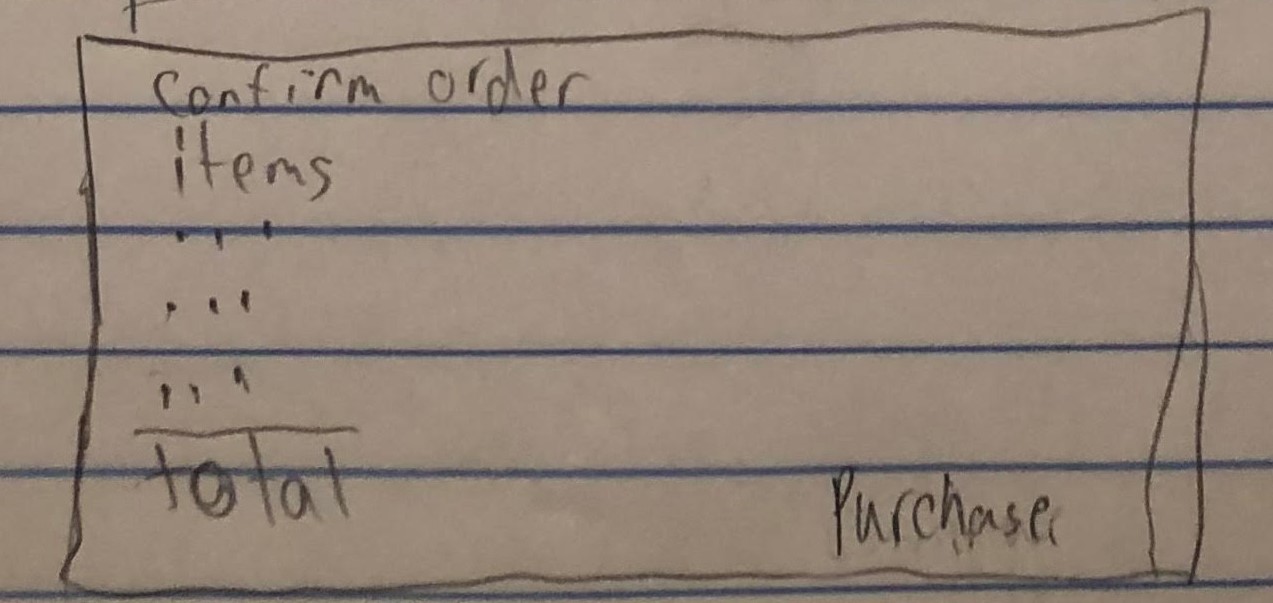 Confirm order
items
...
...
...
total
Purchase